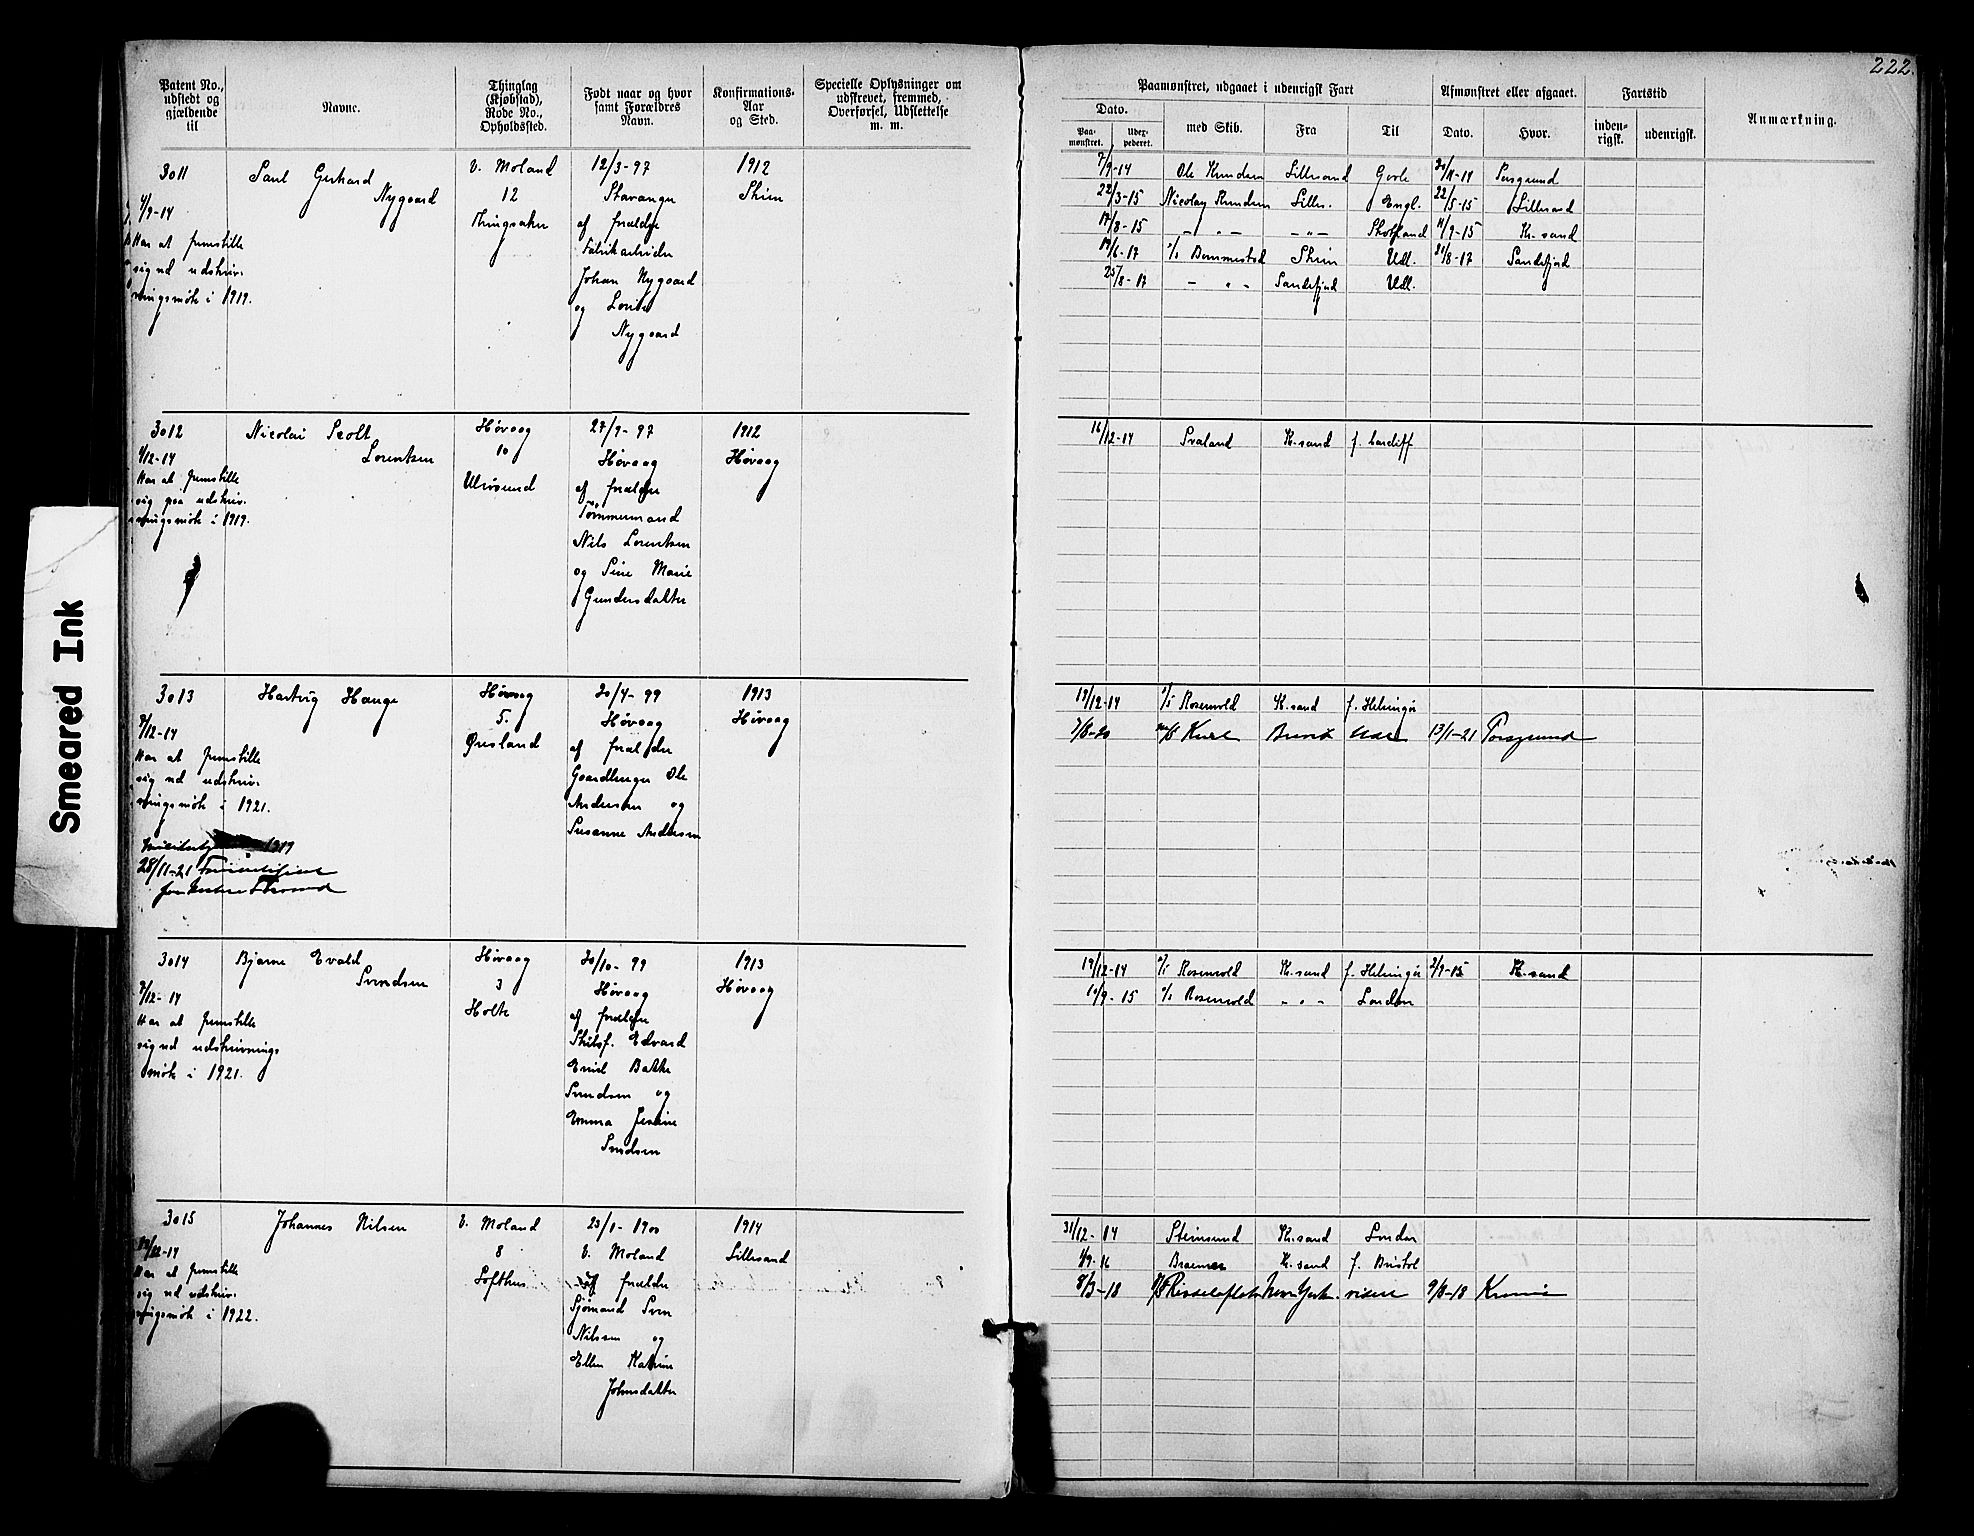 222.
Patent No., udstedt og gjældende til
Navne.
Thinglag (Kjøbstad), Rode No., Opholdssted.
Født naar og hvor samt Forældres Navn.
Konfirmations-Aar og Sted.
Specielle Oplysninger om udskrevet, fremmed, Overførsel, Udslettelse m. m.
Paamønstret, udgaaet i udenrigsk Fart
Dato.
Paa-mønstret.
Uder-pederet.
med Skib.
Fra
Til
Afmønstret eller afgaaet.
Dato.
Hvor.
Fartstid
inden-rigsk.
udenrigsk.
Anmærkning.
3011
4/9-14
Har at fremstille
sig ved udskriv-
ningsmøte i 1919.
Paul Gerhard
Nygaard
V. Moland
12
Thingsaker
12/3-97
Stavanger
af forældre
Fabrikarbeider
Johan Nygaard
og Lovise
Nygaard
1912
Skien
7/9-14 Ole Knudsen Lillesand Gefle Porsgrund
22/3-15 Nicolay Knudsen Lilles. Engl. 22/5-15 Lillesand
17/8-15 — „ — — „ — Skotland 11/9-15 Kr.sand
19/6-17 s/s Bommestad Skien Udl. 21/8-17 Sandefjord
25/8-17 — „ — Sandefjord Udl.
3012
4/12-14
Har at fremstille
sig paa udskriv-
ningsmøte i 1919.
Nicolai Scolt
Lorentsen
Høvaag
10
Ulvøsund
27/9-97
Høvaag
af forældre
Tømmermand
Nils Lorentsen
og Sine Marie
Gundersdatter
1912
Høvaag
16/12-14 Svaland Kr.sand f. Cardiff
3013
9/12-14
Har at fremstille
sig ved udskriv-
ningsmøte i 1921.
1919
28/11-21
Hartvig Hauge
Høvaag
5.
Øresland
20/4-99
Høvaag
af forældre
Gaardbruger Ole
Andersen og
Susanne Andersen
1913
Høvaag
19/12-14 s/s Rosenvold Kr.sand f. Helsingør
7/8-20 13/1-21 Porsgrund
3014
9/12-14
Har at fremstille
sig ved udskrivnings
møte i 1921.
Bjarne Evald
Svendsen
Høvaag
3
Holte
20/10-99
Høvaag
af forældre
Skibsf. Edvard
Emil Bakke
Svendsen og
Emma Jensine
Svendsen
1913
Høvaag
19/12-14 s/s Rosenvold Kr.sand f. Helsingør 2/9-15 Kr.sand
10/9-15 s/s Rosenvold — „ — London
3015
Har at fremstille
sig ved udskriv-
ningsmøte i 1922.
Johannes Nilsen
V. Moland
8
Lofthus
23/1-1900
V. Moland
af forældre
Sjømand Sven
Nilssen og
Ellen Katrine
Johnsdatter
1914
Lillesand
31/12-14 Steinsund Kr.sand London
1/9-16 Braemar Kr.sand f. Bristol
8/3-18 New York videre 9/8-18
Smeared Ink